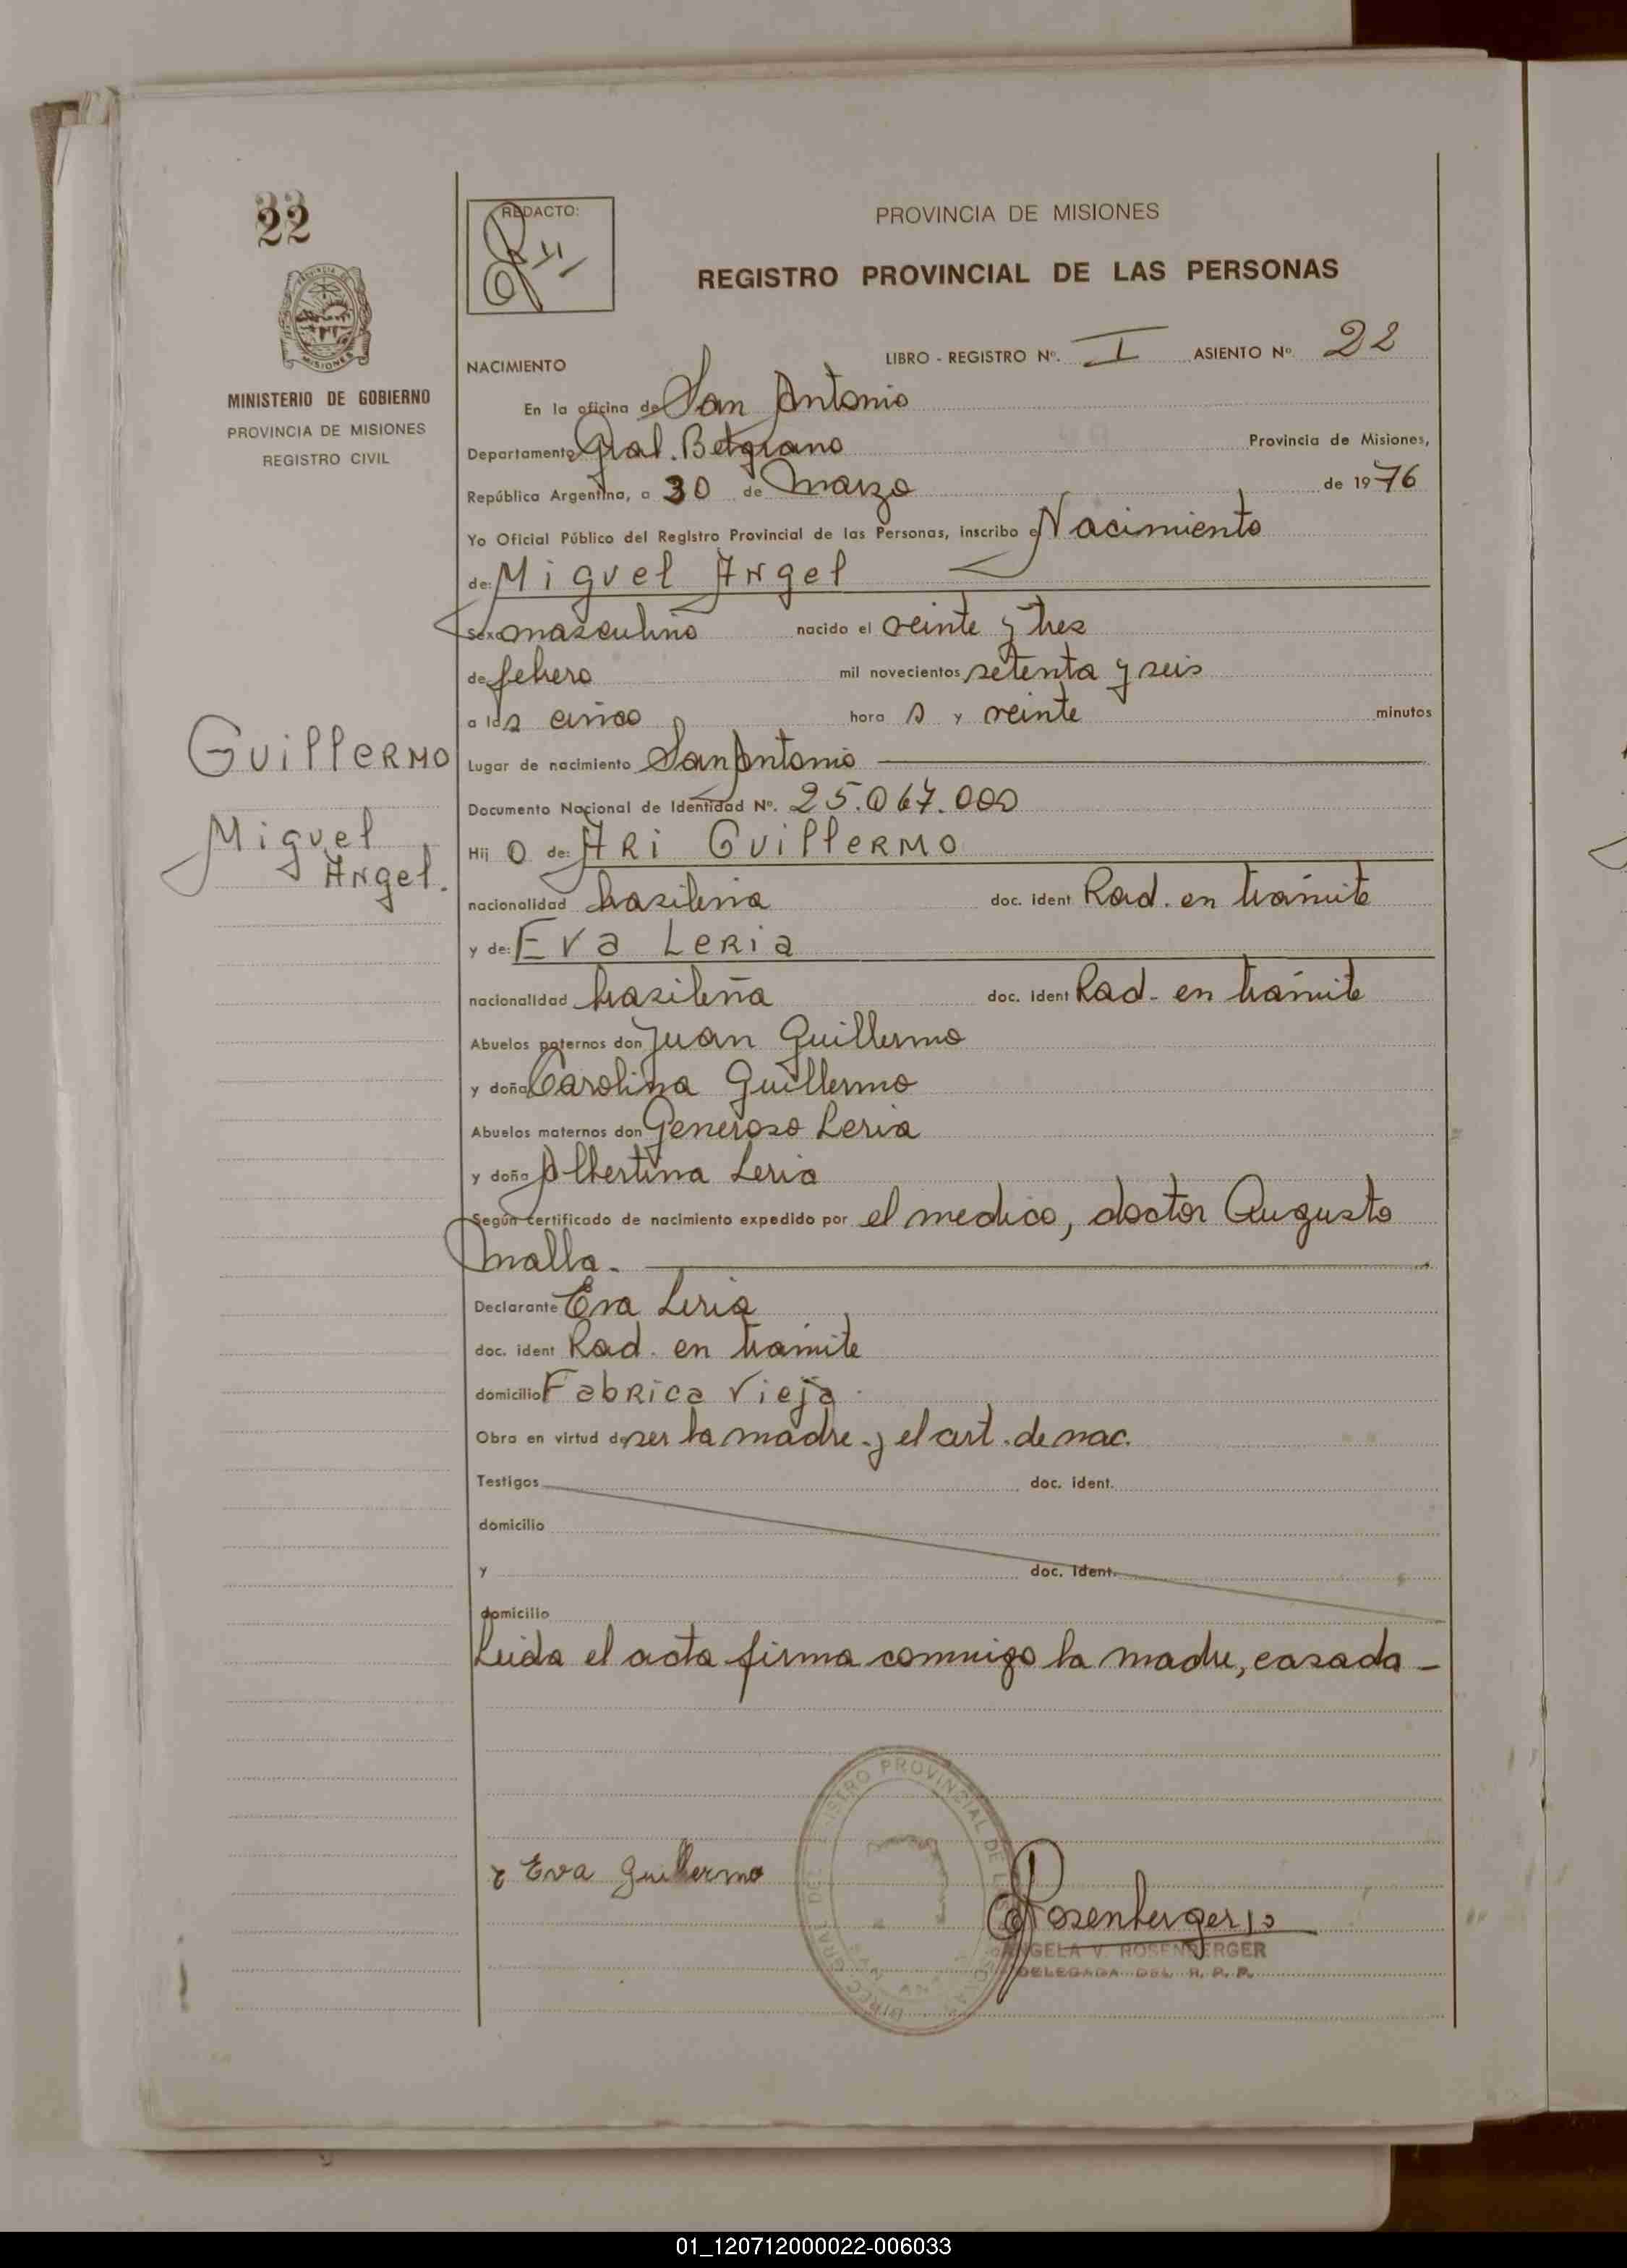 22
REDACTO:
PROVINCIA DE MISIONES
REGISTRO PROVINCIAL DE LAS PERSONAS
PROVINCIA DE
MISIONES
MINISTERIO DE GOBIERNO
PROVINCIA DE MISIONES
REGISTRO CIVIL
NACIMIENTO LIBRO - REGISTRO Nº. I ASIENTO Nº. 22
En la oficina de San Antonio
Departamento Gral. Belgrano Provincia de Misiones,
República Argentina, a 30 de Marzo de 1976
Yo Oficial Público del Registro Provincial de las Personas, inscribo el Nacimiento
de: Miguel Angel
Sexo masculino nacido el veinte y tres
de febrero mil novecientos setenta y seis
a las cinco hora s y veinte minutos
Guillermo
Miguel
Angel.
Lugar de nacimiento San Antonio
Documento Nacional de Identidad Nº. 25.067.000
Hij o de: Ari Guillermo
nacionalidad brasileña doc. ident Rad. en trámite
y de: Eva Leria
nacionalidad brasileña doc. ident Rad. en trámite
Abuelos paternos don Juan Guillermo
y doña Carolina Guillermo
Abuelos maternos don Generoso Leria
y doña Albertina Leria
Según certificado de nacimiento expedido por el medico, doctor Augusto
Malla.
Declarante Eva Leria
doc. ident Rad. en tramite
domicilio Fabrica Vieja
Obra en virtud de ser la madre y el cert. de nac.
Testigos doc. ident.
domicilio
y doc. ident.
domicilio
Leida el acta firma conmigo la madre, casada -
Eva Guillermo
Rosenberger
ANGELA V. ROSENBERGER
DELEGADA DEL R. P. P.
REGISTRO PROVINCIAL DE LAS
01_120712000022-006033